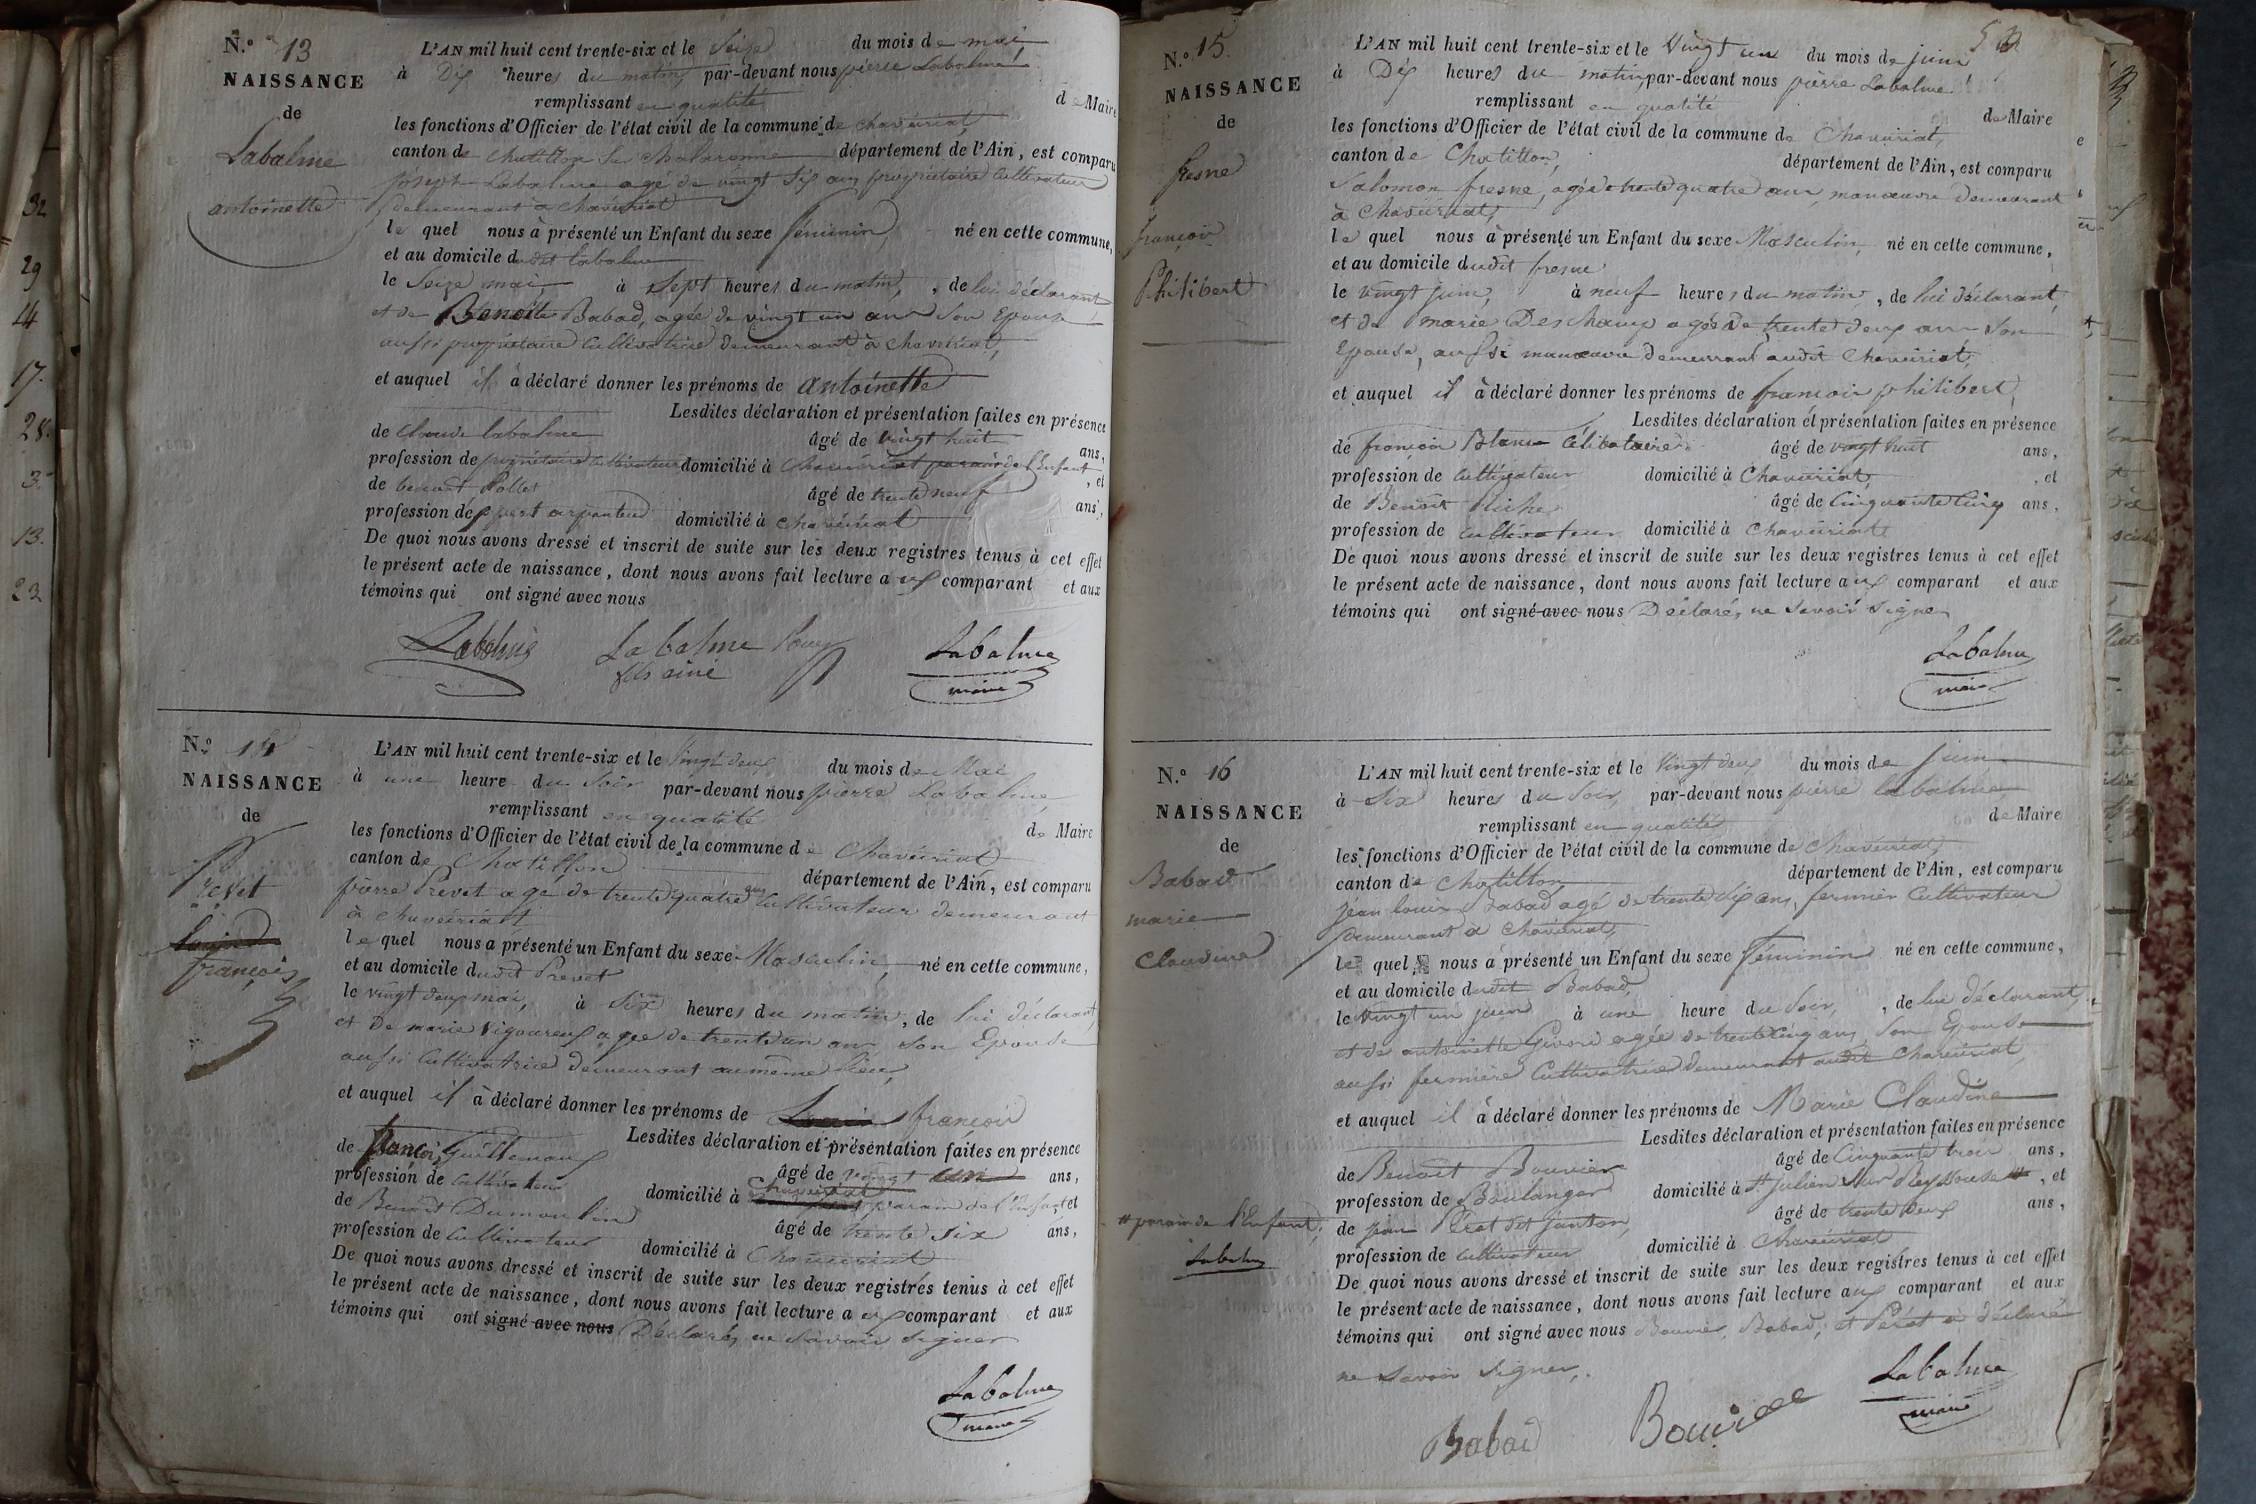 N.° 13
NAISSANCE
de
Labalme
antoinette
L'AN mil huit cent trente-six et le Seize du mois de mai,
à Dix heures du matin, par-devant nous pierre Labalme,
remplissant en qualité de Maire
les fonctions d'Officier de l'état civil de la commune de chaveiriat,
canton de chatillon sur chalaronne département de l'Ain, est comparu
joseph Labalme agé de vingt six ans propriétaire cultivateur
demeurant à chaveiriat
le quel nous à présenté un Enfant du sexe féminin, né en cette commune,
et au domicile dudit Labalme
le Seize mai, à Sept heures du matin, de lui déclarant,
et de Benoîte Babad, agée de vingt un ans Son Epouse
aussi propriétaire cultivatrice demeurant à chaveiriat,
et auquel il à déclaré donner les prénoms de antoinette
Lesdites déclaration et présentation faites en présence
de Claude Labalme âgé de vingt huit ans,
profession de propriétaire cultivateur domicilié à chaveiriat parrain de l'Enfant, et
de benoit Pollet âgé de trente neuf ans,
profession d'expert arpenteur domicilié à chaveiriat
De quoi nous avons dressé et inscrit de suite sur les deux registres tenus à cet effet
le présent acte de naissance, dont nous avons fait lecture aux comparant et aux
témoins qui ont signé avec nous
Labalme Labalme
fils ainé Labalme
maire
N.° 14
NAISSANCE
de
Prevet
françois
L'AN mil huit cent trente-six et le Vingt deux du mois de Mai
à une heure du Soir par-devant nous pierre Labalme,
remplissant en qualité de Maire
les fonctions d'Officier de l'état civil de la commune de Chaveiriat
canton de Chatillon département de l'Ain, est comparu
pierre Prevet agé de trente quatre ans cultivateur demeurant
à chaveiriat
le quel nous a présenté un Enfant du sexe Masculin, né en cette commune,
et au domicile dudit Prevet
le vingt deux mai, à Six heures du matin, de lui déclarant,
et De marie Vigoureux agée de trente un ans Son Epouse
aussi Cultivatrice demeurant au même lieu,
et auquel il à déclaré donner les prénoms de françois
Lesdites déclaration et présentation faites en présence
de françois Guillemaux âgé de vingt un ans,
profession de cultivateur domicilié à Chaveiriat parain de l'Enfant et
de Benoît Dumoulin âgé de trente Six ans,
profession de Cultivateur domicilié à Chaveiriat
De quoi nous avons dressé et inscrit de suite sur les deux registres tenus à cet effet
le présent acte de naissance, dont nous avons fait lecture aux comparant et aux
témoins qui ont signé avec nous Déclaré, ne Savoir Signer
Labalme
maire
N.° 15.
NAISSANCE
de
fresne
françois
Philibert
L'AN mil huit cent trente-six et le Vingt un du mois de juin
à Dix heures du matin, par-devant nous pierre Labalme
remplissant en qualité de Maire
les fonctions d'Officier de l'état civil de la commune de Chaveiriat,
canton de Chatillon, département de l'Ain, est comparu
Salomon fresne, agé de trente quatre ans, manœuvre demeurant
à Chaveiriat,
le quel nous à présenté un Enfant du sexe Masculin, né en cette commune,
et au domicile dudit fresne
le vingt juin, à neuf heures du matin, de lui déclarant,
et de marie Deschamp agée De trente deux ans Son
Epouse, aussi manœuvre demeurant audit Chaveiriat,
et auquel il à déclaré donner les prénoms de françois philibert,
Lesdites déclaration et présentation faites en présence
de françois Blanc Célibataire âgé de vingt huit ans,
profession de cultivateur domicilié à Chaveiriat, et
de Benoit Riche âgé de Cinquante Cinq ans,
profession de cultivateur domicilié à Chaveiriat
De quoi nous avons dressé et inscrit de suite sur les deux registres tenus à cet effet
le présent acte de naissance, dont nous avons fait lecture aux comparant et aux
témoins qui ont signé avec nous Déclaré, ne Savoir Signer
Labalme
maire
N.° 16
NAISSANCE
de
Babad
marie
Claudine
L'AN mil huit cent trente-six et le Vingt deux du mois de juin
à Six heures du Soir, par-devant nous pierre Labalme
remplissant en qualité de Maire
les fonctions d'Officier de l'état civil de la commune de Chaveiriat,
canton de Chatillon département de l'Ain, est comparu
jean louis Babad agé de trente six ans, fermier Cultivateur
demeurant à Chaveiriat,
le quel nous à présenté un Enfant du sexe féminin né en cette commune,
et au domicile dudit Babad,
le Vingt un juin à une heure du Soir, de lui déclarant,
et de antoinette Givord agée de trente cinq ans, Son Epouse
aussi fermière Cultivatrice demeurant audit Chaveiriat
et auquel il à déclaré donner les prénoms de Marie Claudine
Lesdites déclaration et présentation faites en présence
de Benoît Bouvier âgé de Cinquante trois ans,
profession de Boulanger domicilié à St Julien Sur Reyssouse #, et
de jean Péret dit janton, âgé de trente deux ans,
profession de cultivateur domicilié à Chaveiriat
De quoi nous avons dressé et inscrit de suite sur les deux registres tenus à cet effet
le présent acte de naissance, dont nous avons fait lecture aux comparant et aux
témoins qui ont signé avec nous Bouvier, Babad, et Péret a déclaré
ne Savoir Signer.
# parain de l'Enfant,
Labalme
Babad Bouvier Labalme
maire
32
29
14
17.
28.
3.
13.
23